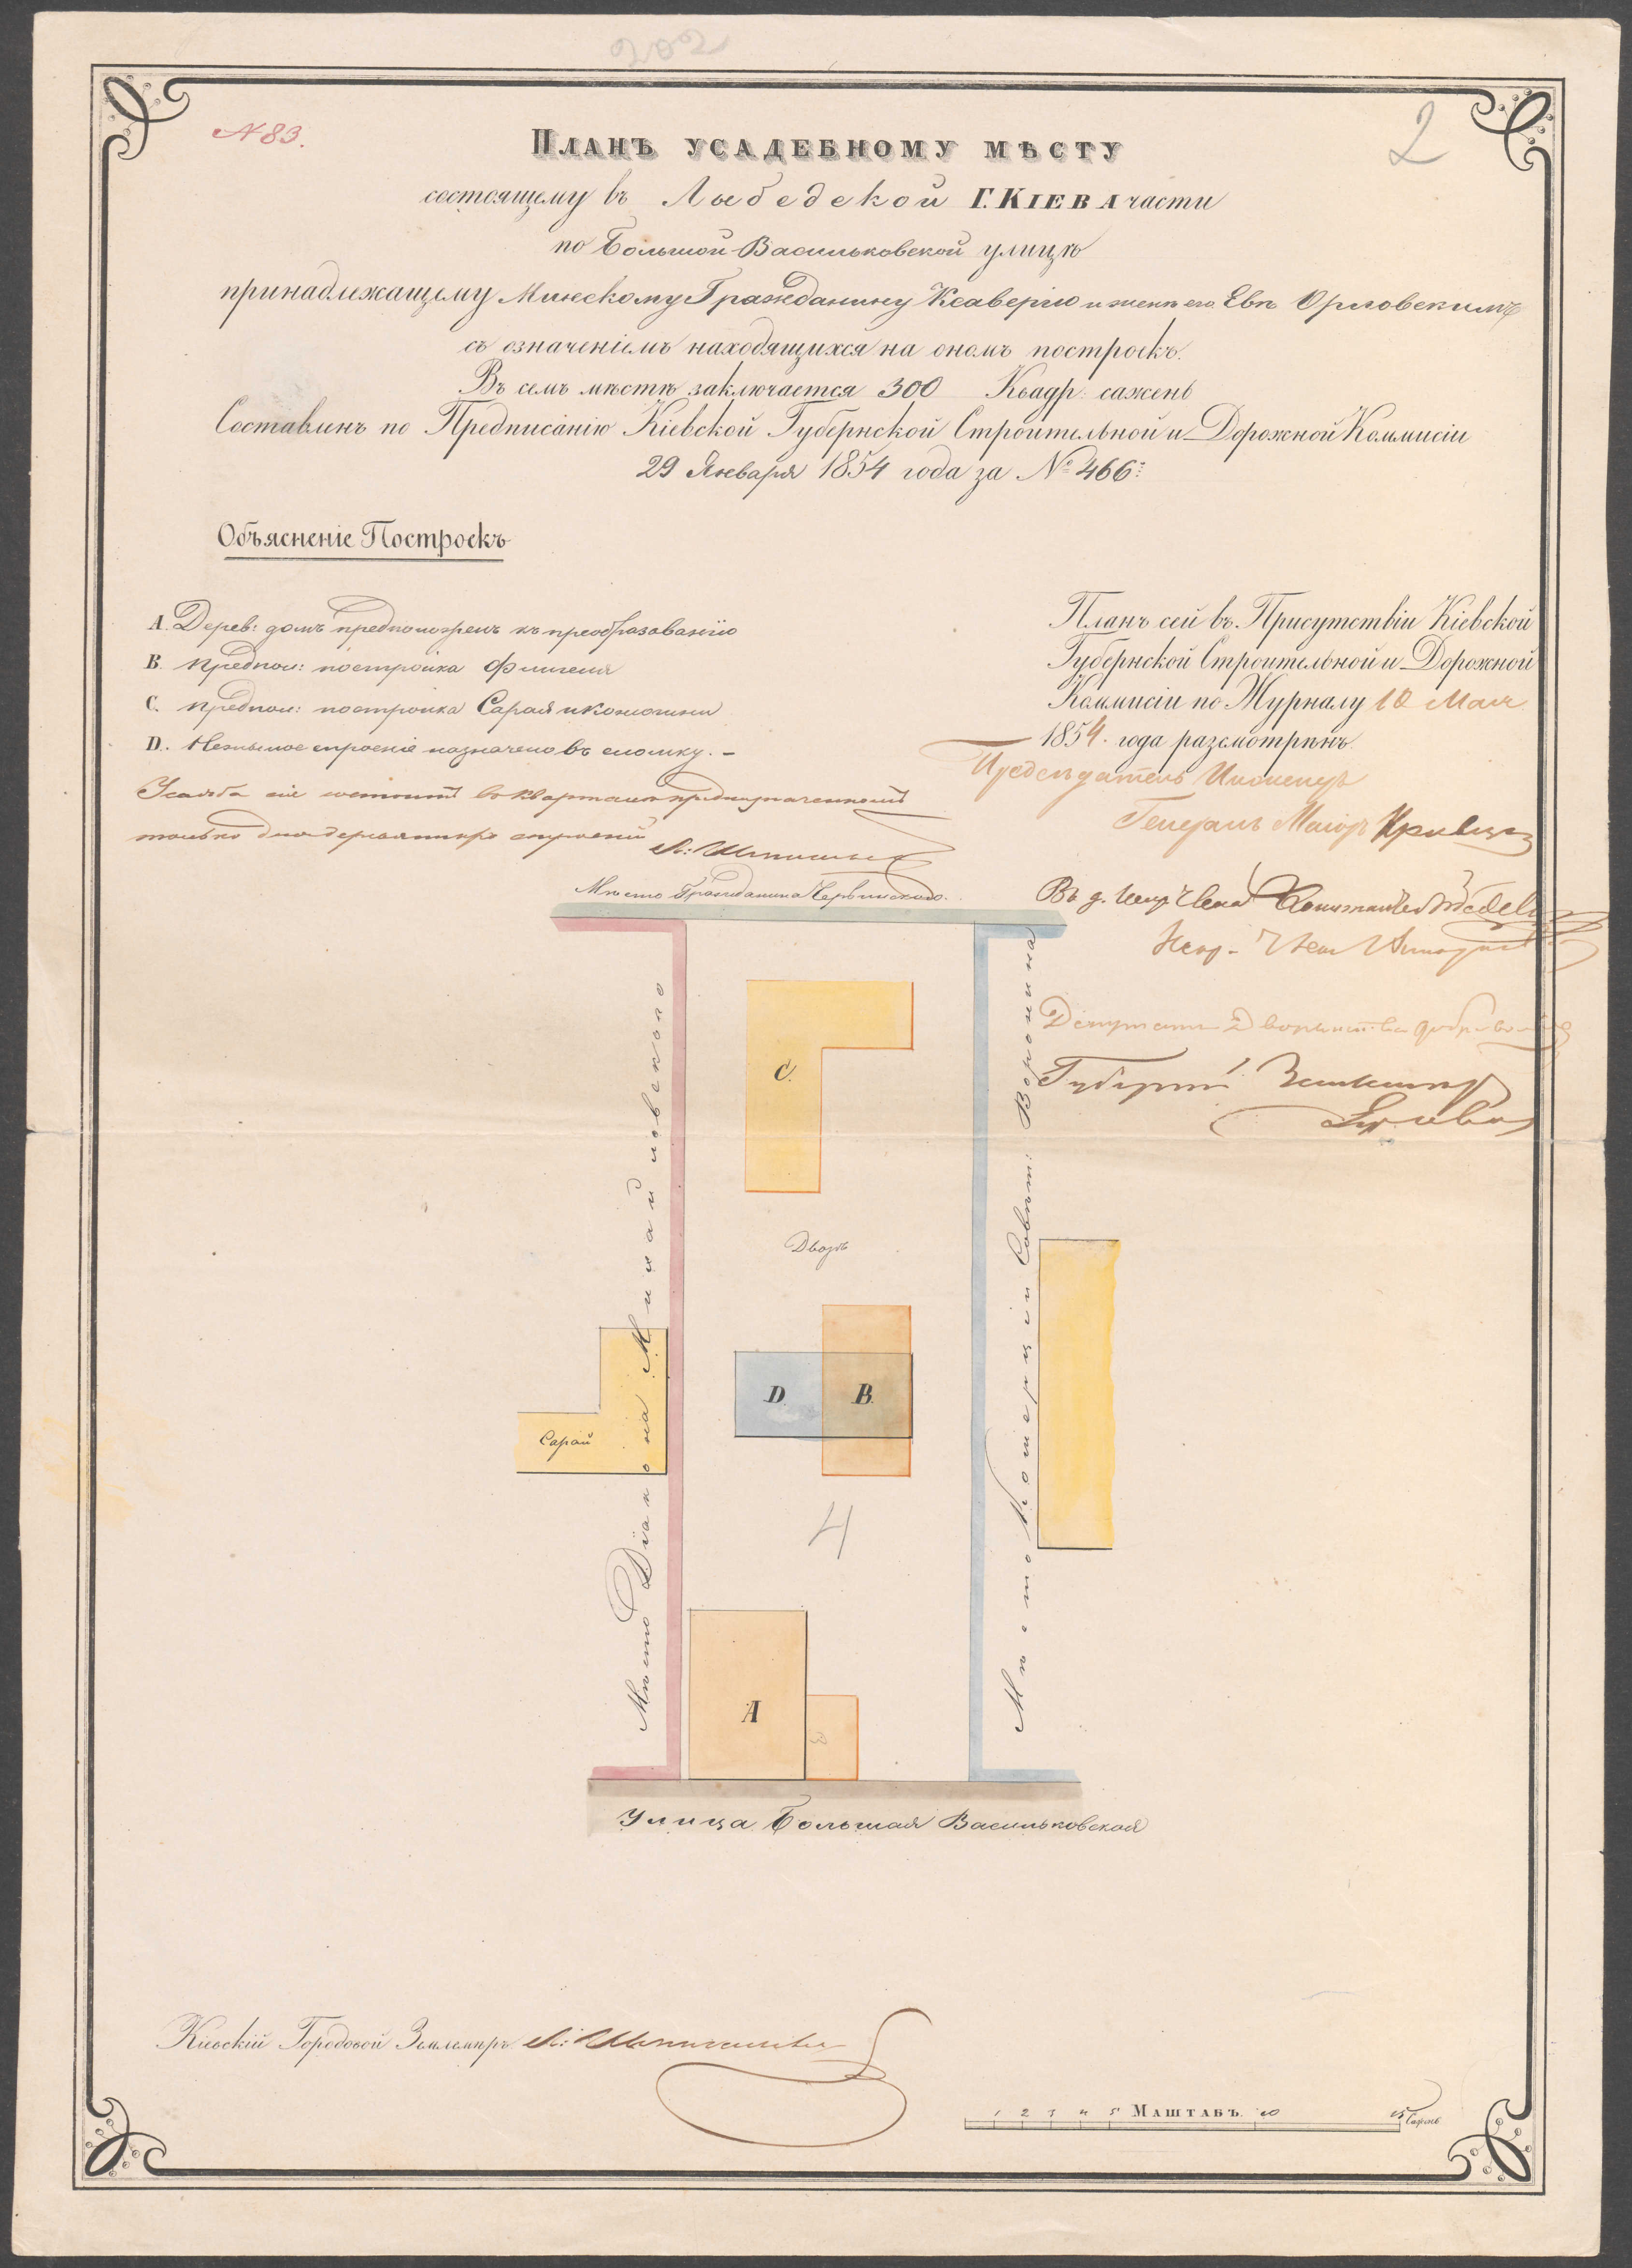 202
N 83.
2
Планъ усадебному мѣсту
состоящему въ Лыбедской Г. Кіева части
по Большой Васильковской улицѣ
принадлежащему Минскому Гражданину Ксаверію и женѣ его Евѣ Орловскимъ
съ означеніемъ находящихся на ономъ построекъ.
Въ семъ мѣстѣ заключается 300 Квадр: сажень
Составленъ по Предписанію Кіевской Губернской Строительной и Дорожной Коммисіи
29 Января 1854 года за № 466:
Объясненіе Построекъ
A. Дерев: домъ предположенъ къ преобразованію
B. Предпол: постройка Флигеля
C. Предпол: постройка Сарая и конюшни
D. Нежилое строеніе назначено въ сломку. –
Усадьба сія состоитъ въ кварталѣ предназначенномъ
только для деревянныхъ строеній
Планъ сей въ Присутствіи Кіевской
Губернской Строительной и Дорожной
Коммисіи по Журналу 10 Мая
1854. года разсмотрѣнъ.
Предсѣдатель Инженеръ
Генералъ Маіоръ
Депутатъ Дворянства
Губерн:
Мѣсто Гражданина Червинскаго.
Мѣсто Діакона Миладовскаго
Мѣсто Комерціи Совѣт: Воронина
C.
Дворъ
D.
B.
Сарай
4
A
Улица Большая Васильковская
Кіевскій Городовой Землемѣръ
1 2 3 4 5 Маштабъ. 10 15 Сажень